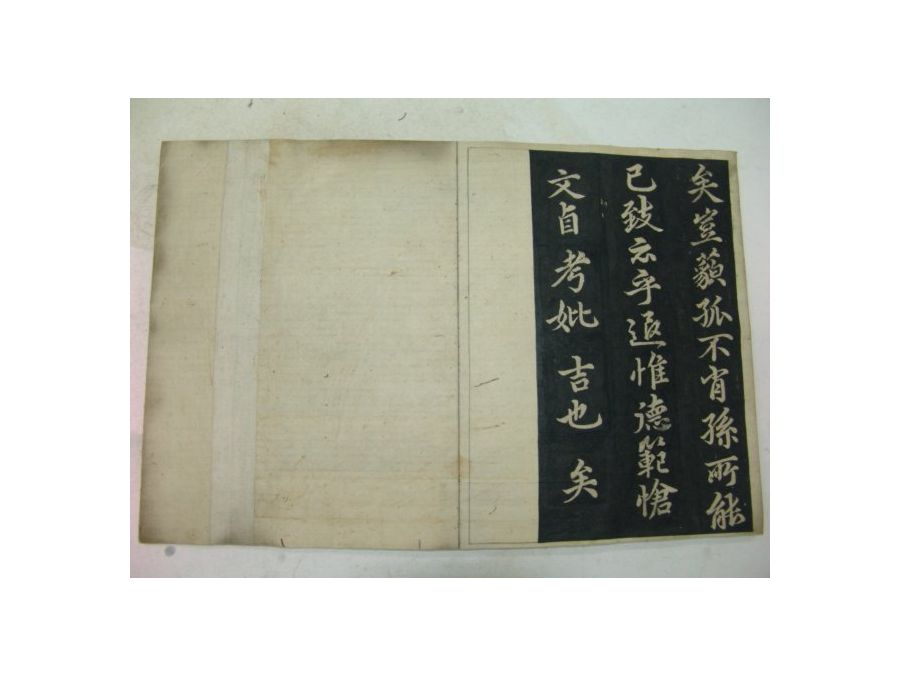 矣豈藐孤不肖孫所能
已致云乎遐惟德範愴
文貞考妣吉也矣